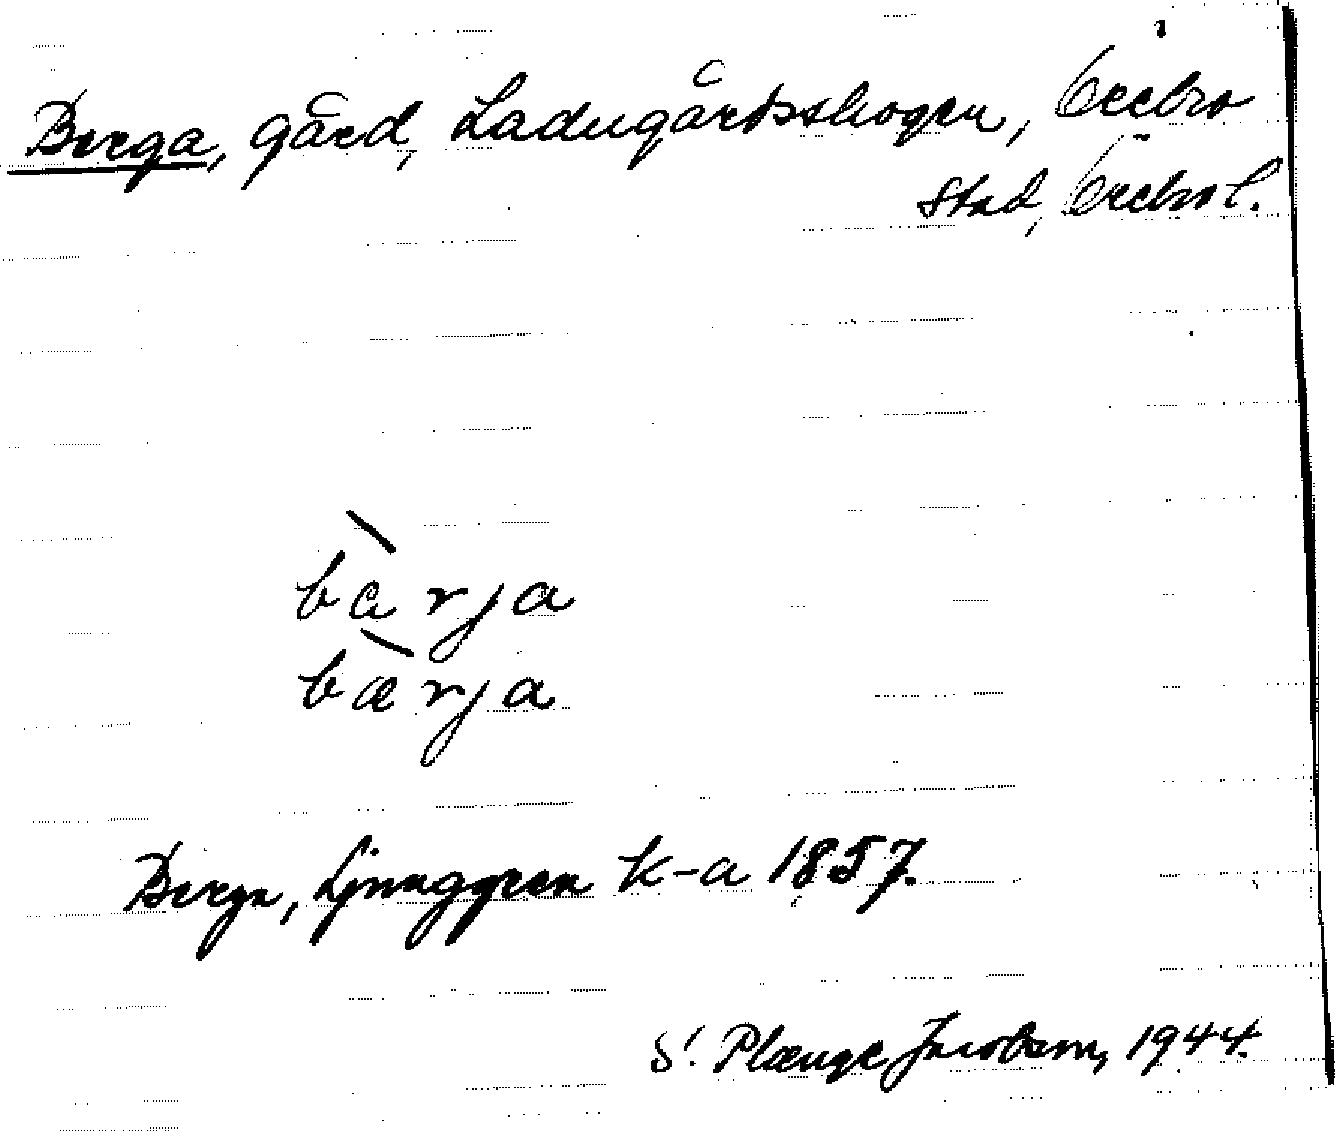 Berga, gård, Ladugårdsskogen, Örebro
stad, Örebro l.
bàrja
bærja
Berga, Ljunggren k-a 1857.
S. Plænge Jacobson, 1944.